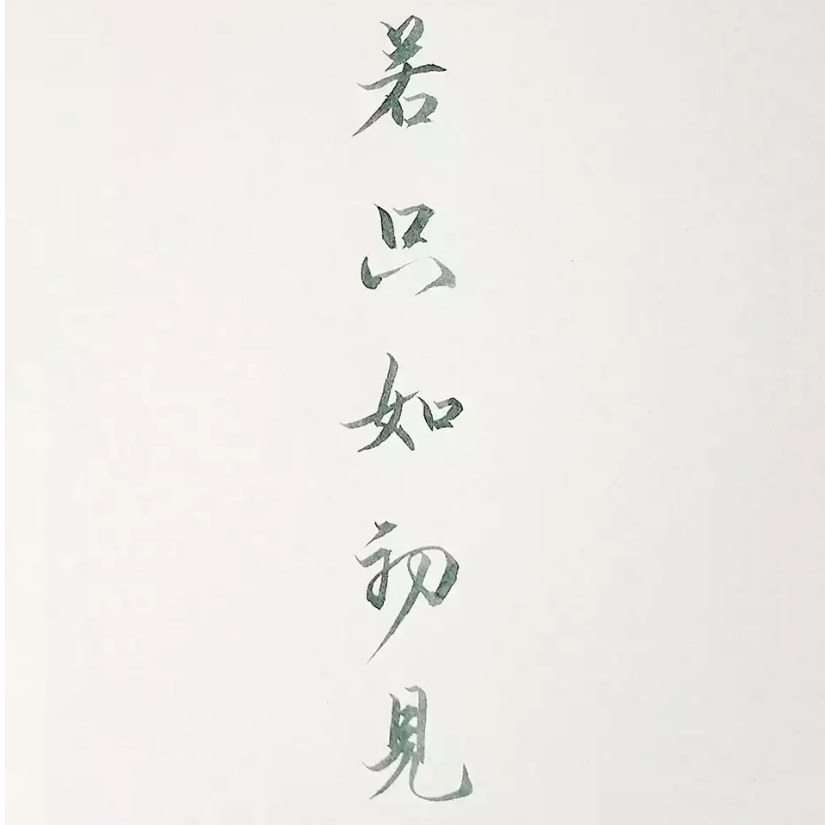 若只如初見